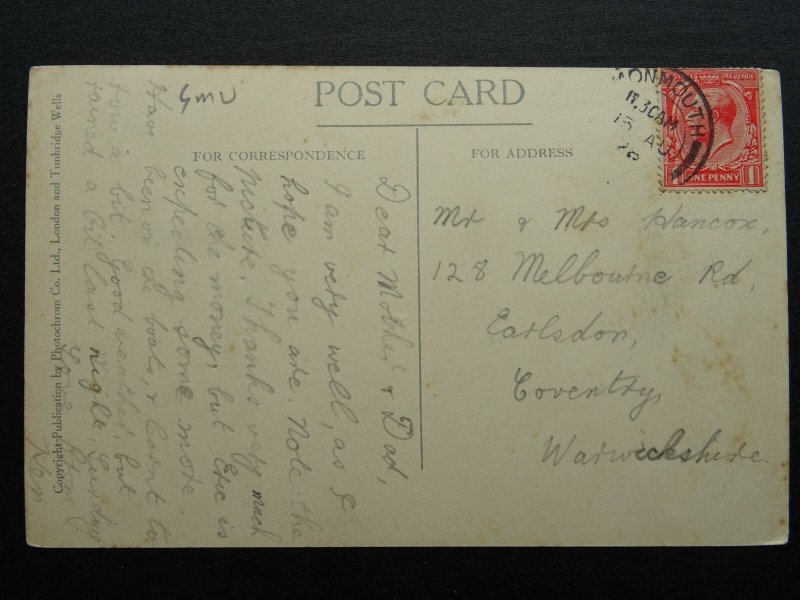 POST CARD
FOR CORRESPONDENCE
FOR ADDRESS
Copyright Publication by Photochrom Co. Ltd., London and Tunbridge Wells
MONMOUTH
11.30AM
15 AU
REVENUE
ONE PENNY
1
Dear Mother & Dad,
I am very well, as I
hope you are. Note the
picture. Thanks very much
for the money, but Eric is
expecting some more.
Have been on the boats, & learnt to
row a bit. Good weather, but
rained a bit last night, Sunday
Your son
Ken
Mr & Mrs Hancox,
128 Melbourne Rd,
Earlsdon,
Coventry,
Warwickshire